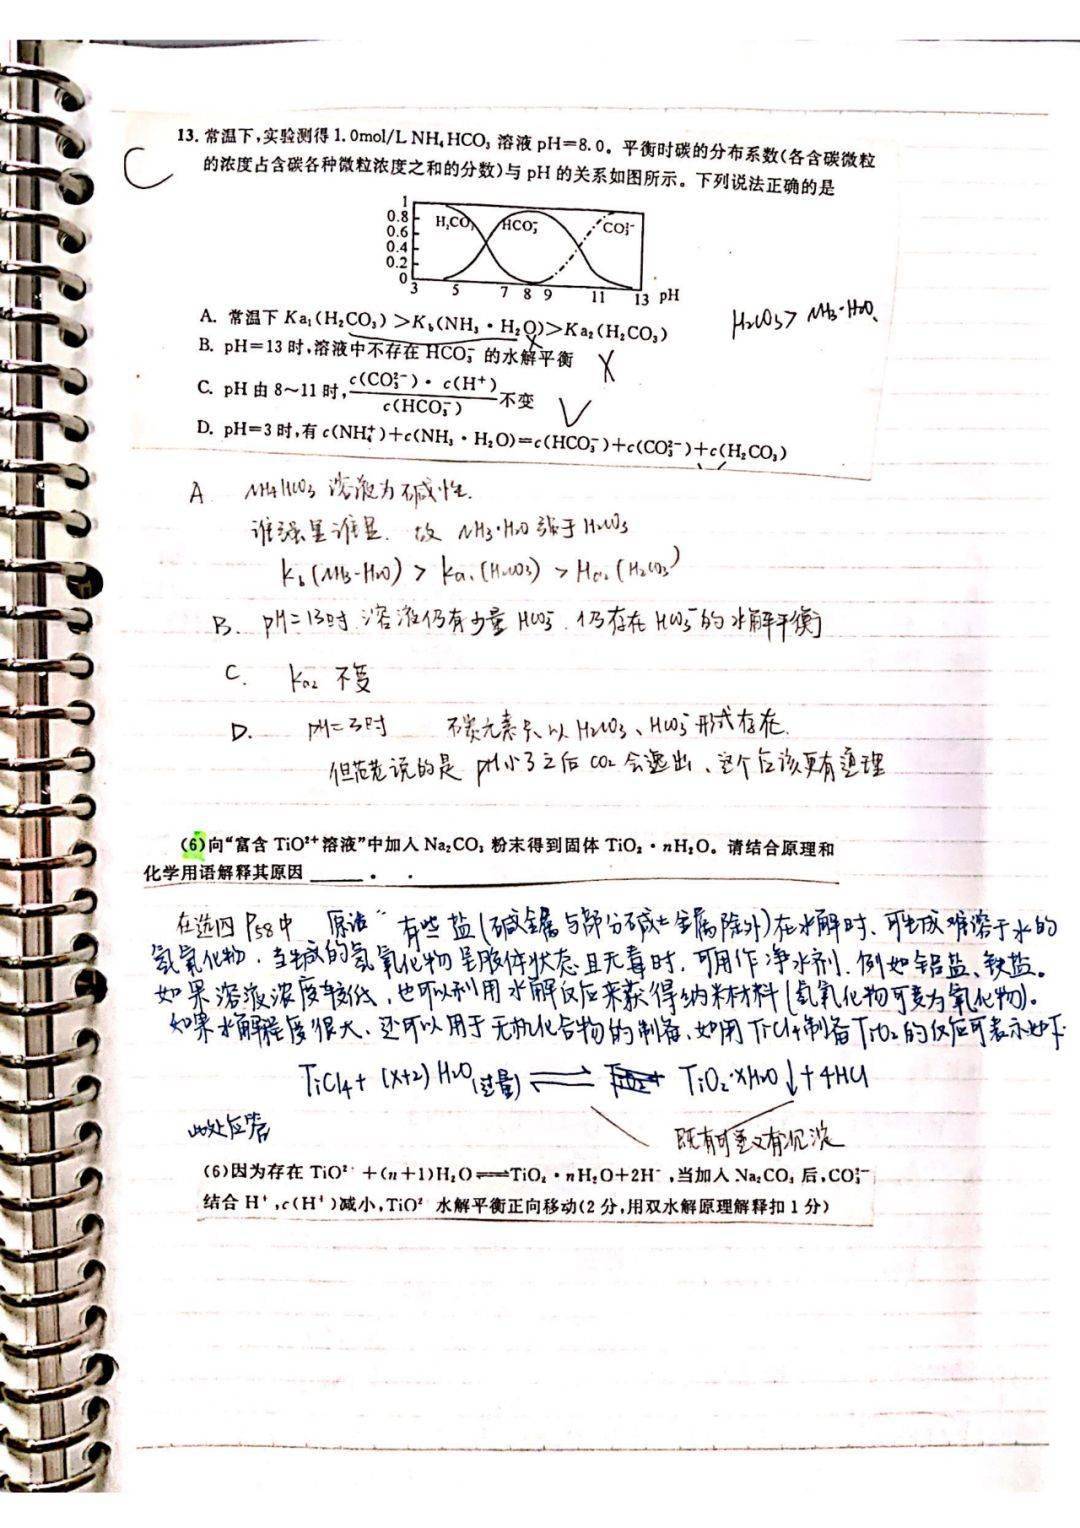 C
13. 常温下,实验测得1.0mol/L NH₄HCO₃ 溶液 pH=8.0。平衡时碳的分布系数(各含碳微粒
的浓度占含碳各种微粒浓度之和的分数)与 pH 的关系如图所示。下列说法正确的是
1
0.8
0.6
0.4
0.2
0
H₂CO₃ HCO₃⁻ CO₃²⁻
3 5 7 8 9 11 13 pH
A. 常温下 Ka₁(H₂CO₃)>K_b(NH₃·H₂O)>Ka₂(H₂CO₃)
H₂CO₃> NH₃·H₂O.
B. pH=13时,溶液中不存在 HCO₃⁻ 的水解平衡
C. pH 由 8~11 时, c(CO₃²⁻)·c(H⁺)/c(HCO₃⁻) 不变
D. pH=3时,有 c(NH₄⁺)+c(NH₃·H₂O)=c(HCO₃⁻)+c(CO₃²⁻)+c(H₂CO₃)
A NH₄HCO₃ 溶液为碱性.
谁强显谁显. 故 NH₃·H₂O 强于 H₂CO₃
K_b(NH₃·H₂O) > Ka₁(H₂CO₃) > Ha₂(H₂CO₃)
B. pH=13时 溶液仍有少量 HCO₃⁻ 仍存在 HCO₃⁻的水解平衡
C. Ka₂ 不变
D. pH=3时 碳元素只以 H₂CO₃、HCO₃⁻形式存在.
但 说的是 pH小了之后 CO₂ 会逸出、这个应该更有道理
(6)向“富含 TiO²⁺溶液”中加入 Na₂CO₃ 粉末得到固体 TiO₂·nH₂O。请结合原理和
化学用语解释其原因 ______。
在选四 P58中 原话“有些盐(碱金属与部分碱土金属除外)在水解时、可生成难溶于水的
氢氧化物.当生成的氢氧化物呈胶体状态且无毒时.可用作净水剂.例如铝盐、铁盐。
如果溶液浓度较低,也可以利用水解反应来获得纳米材料(氢氧化物可变为氧化物).
如果水解程度很大、还可以用于无机化合物的制备、如用TiCl₄制备TiO₂的反应可表示如下
TiCl₄+ (x+2) H₂O(过量) ⇌ TiO₂·xH₂O↓+4HCl
既有可逆又有沉淀
此处应答
(6)因为存在 TiO²⁺+(n+1)H₂O⇌TiO₂·nH₂O+2H⁺,当加入 Na₂CO₃ 后,CO₃²⁻
结合 H⁺,c(H⁺)减小,TiO²⁺水解平衡正向移动(2 分,用双水解原理解释扣 1 分)